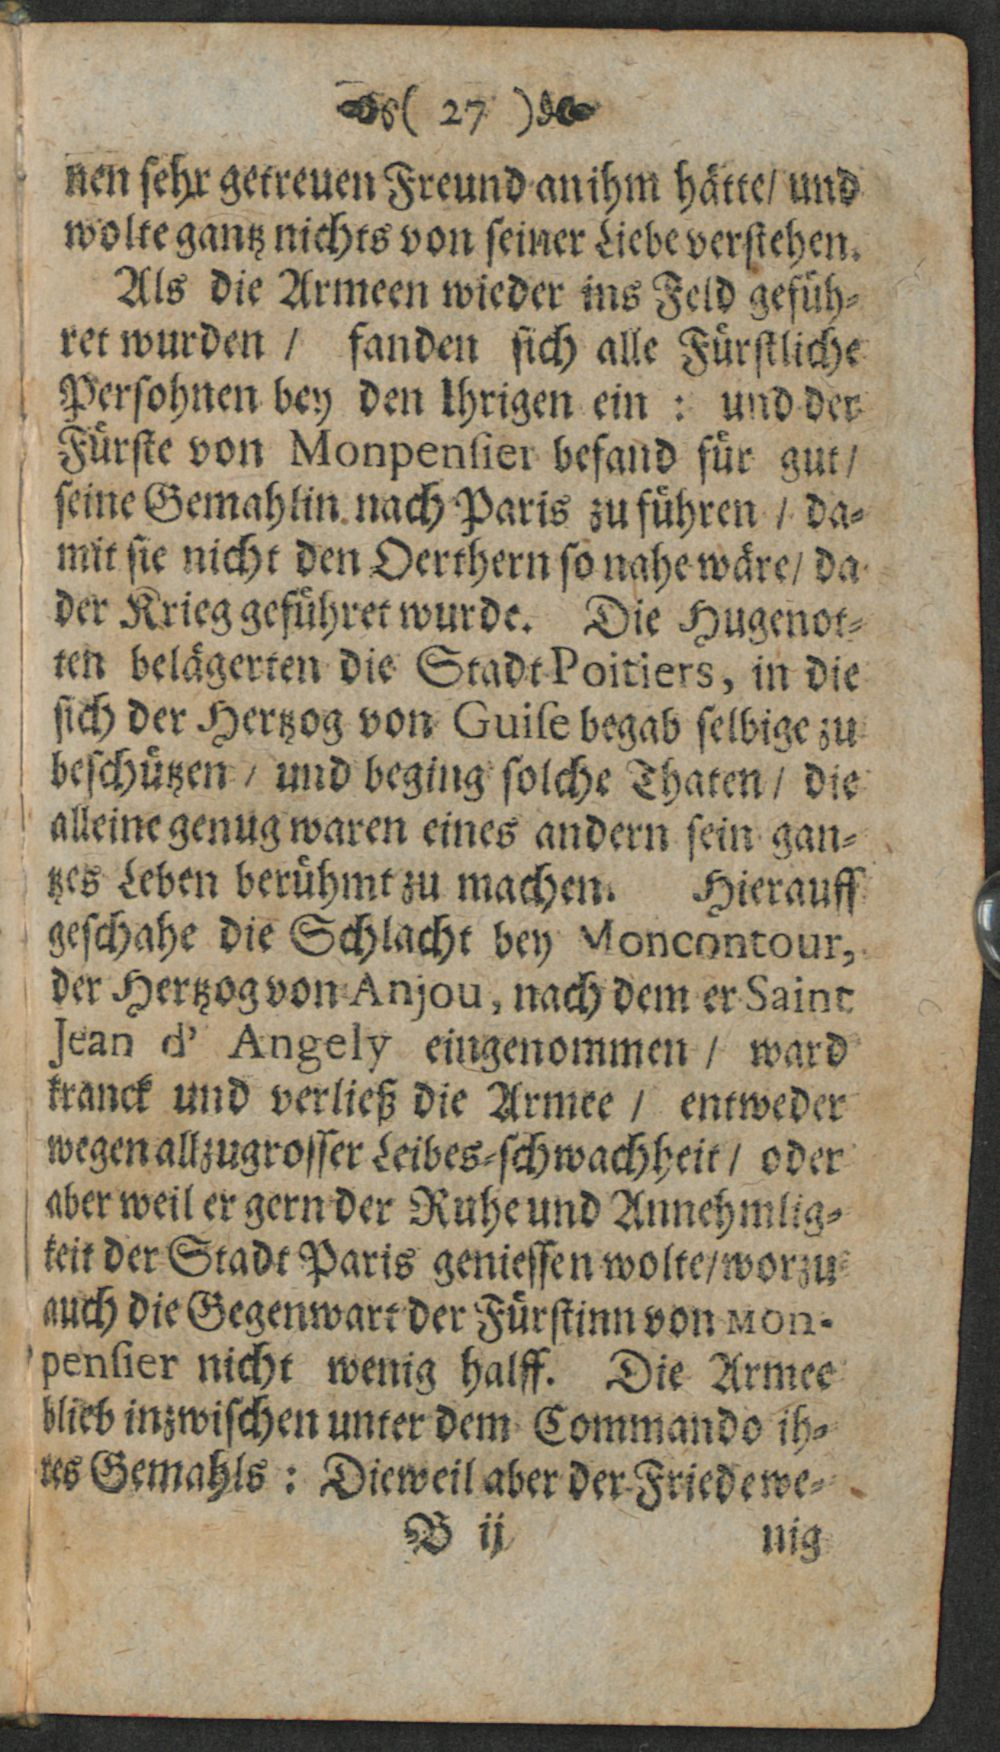 ( 27 )
nen sehr getreuen Freund an ihm hätte/ und
wolte gantz nichts von seiner Liebe verstehen.
Als die Armeen wieder ins Feld gefüh-
ret wurden / fanden sich alle Fürstliche
Persohnen bey den Ihrigen ein : und der
Fürste von Monpensier befand für gut/
seine Gemahlin nach Paris zu führen / da-
mit sie nicht den Oerthern so nahe wäre/ da
der Krieg geführet wurde. Die Hugenot-
ten belägerten die Stadt Poitiers, in die
sich der Hertzog von Guise begab selbige zu
beschützen / und beging solche Thaten / die
alleine genug waren eines andern sein gan-
tzes Leben berühmt zu machen. Hierauff
geschahe die Schlacht bey Moncontour,
der Hertzog von Anjou, nach dem er Saint
Jean d' Angely eingenommen / ward
kranck und verließ die Armee / entweder
wegen allzugrosser Leibes-schwachheit / oder
aber weil er gern der Ruhe und Annehmlig-
keit der Stadt Paris geniessen wolte/worzu
auch die Gegenwart der Fürstinn von Mon-
pensier nicht wenig halff. Die Armee
blieb inzwischen unter dem Commando ih-
res Gemahls : Dieweil aber der Friede we-
B ij nig